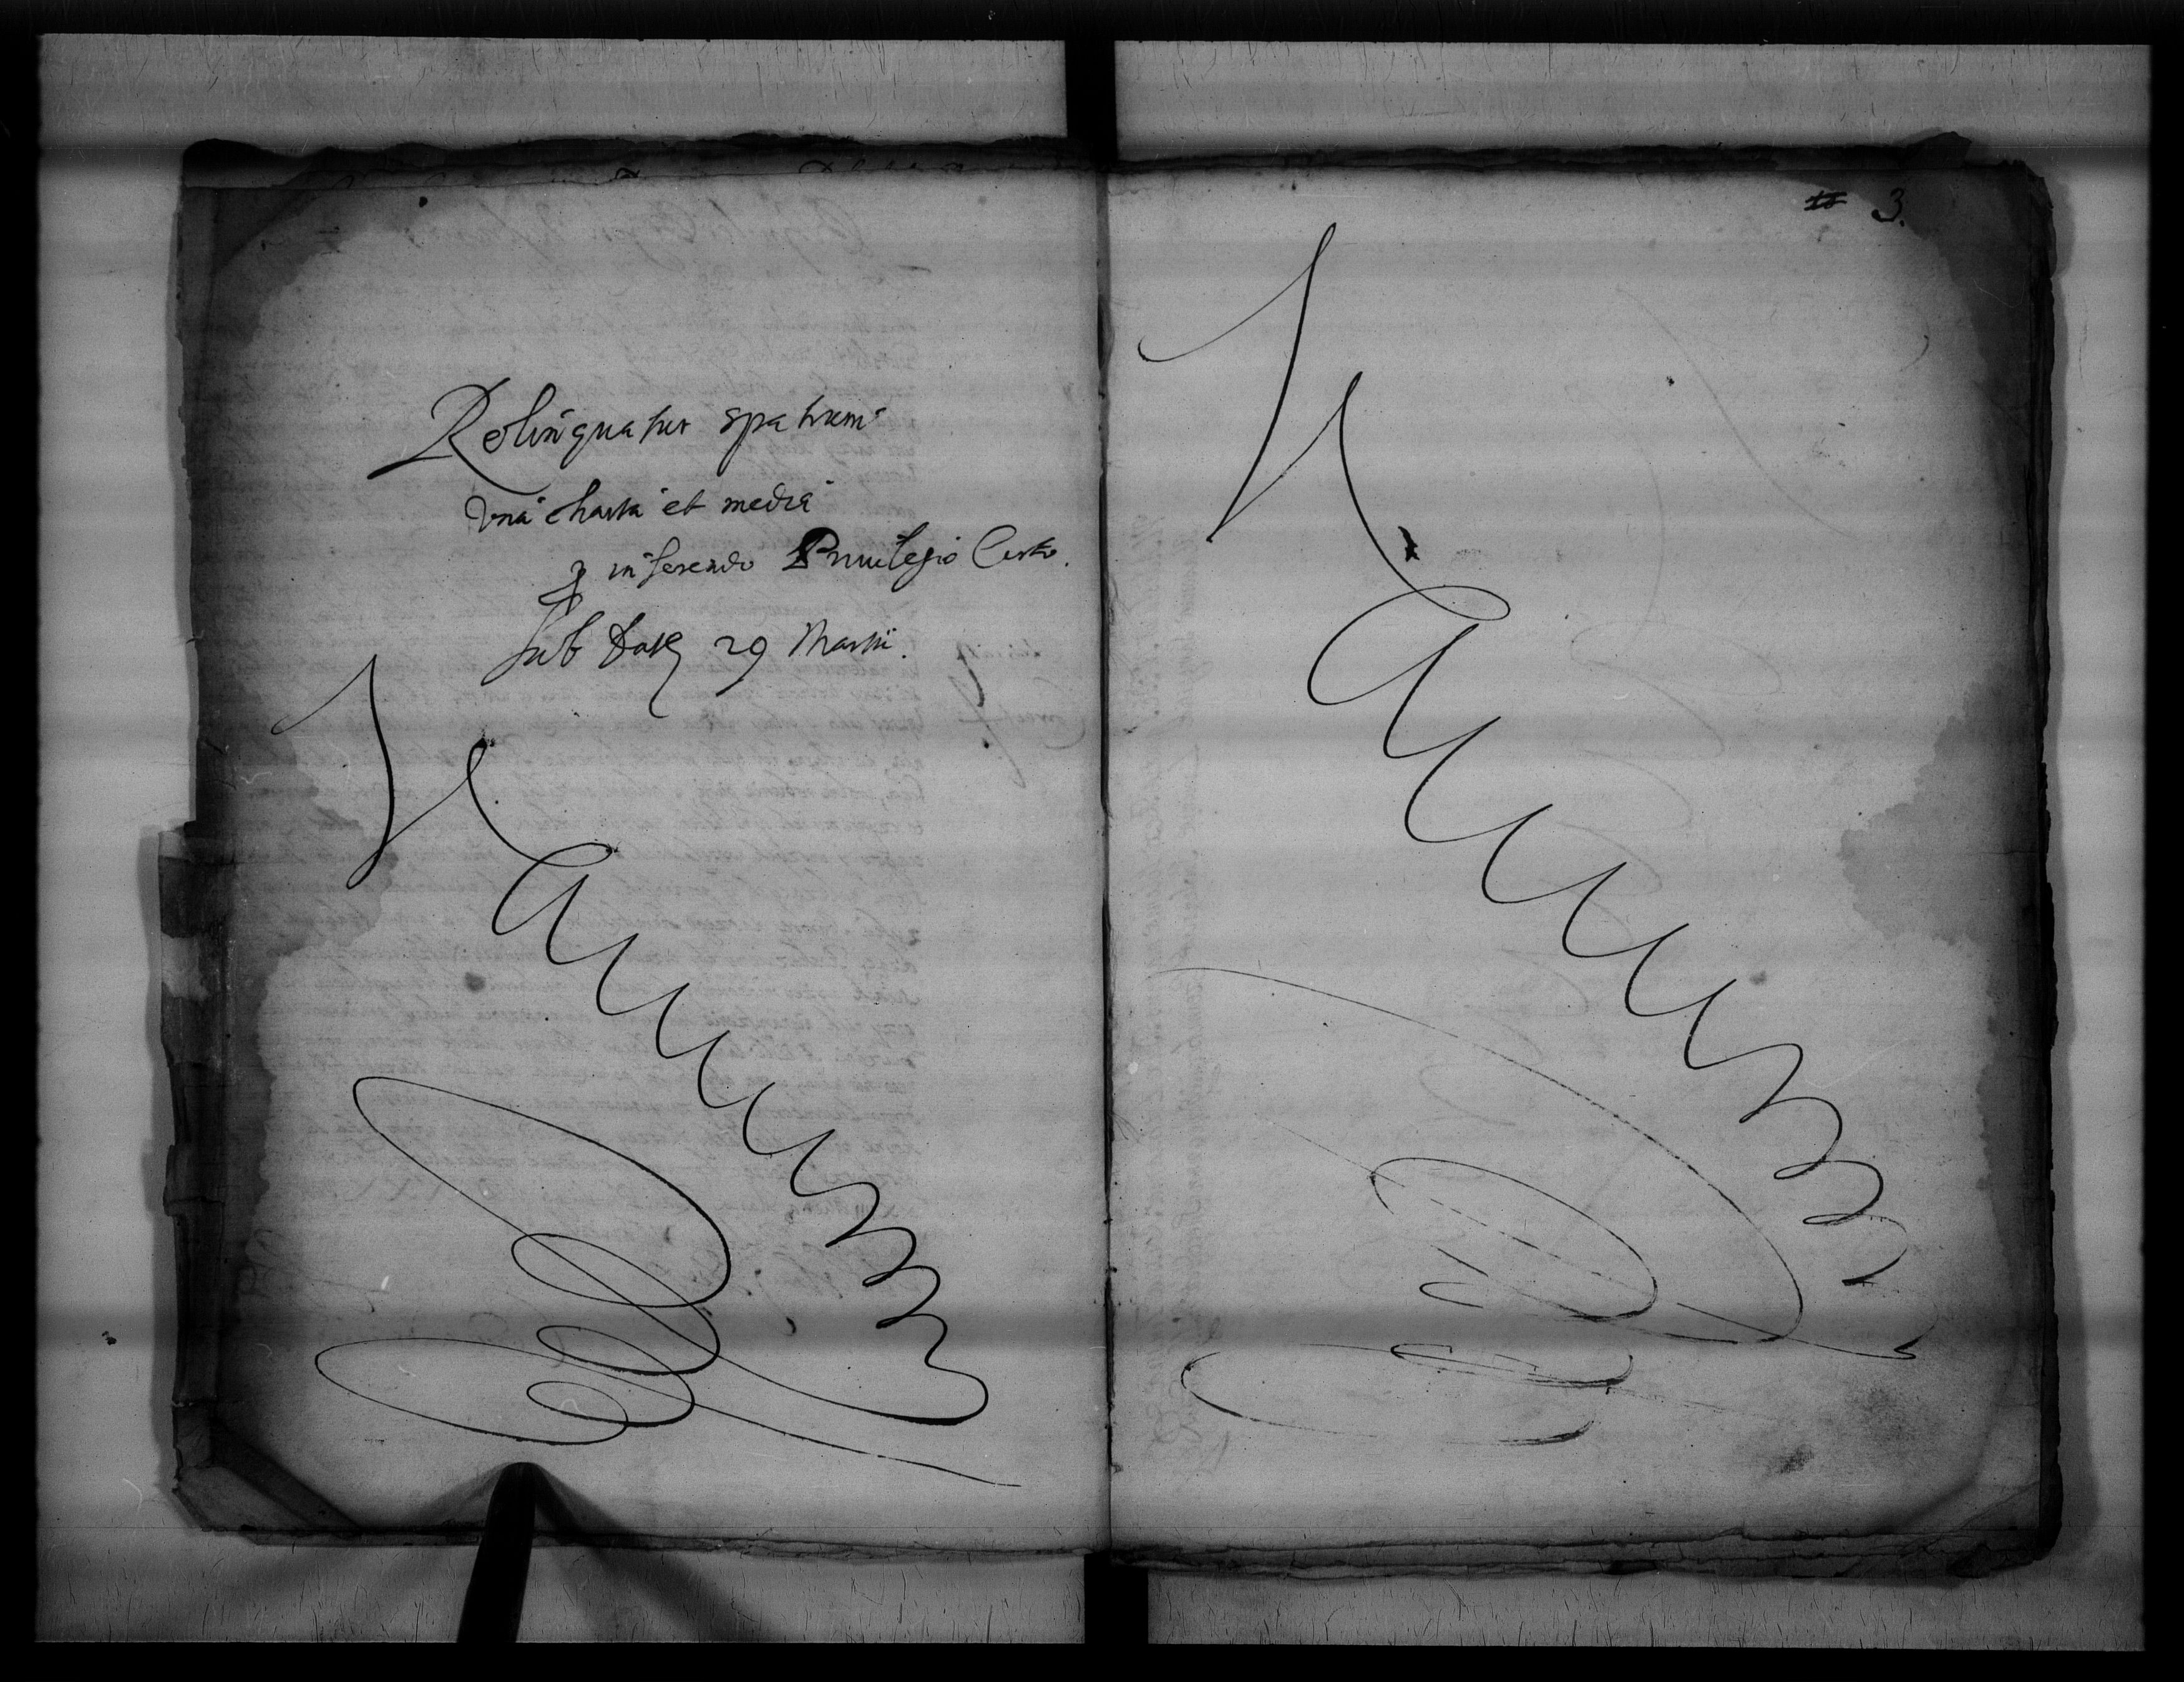 Relinquatur spatium
Vna charta et media
p inserendo Priuilegio Certo.
sub Datt 29 Martii.
Vacuum
3.
Vacuum